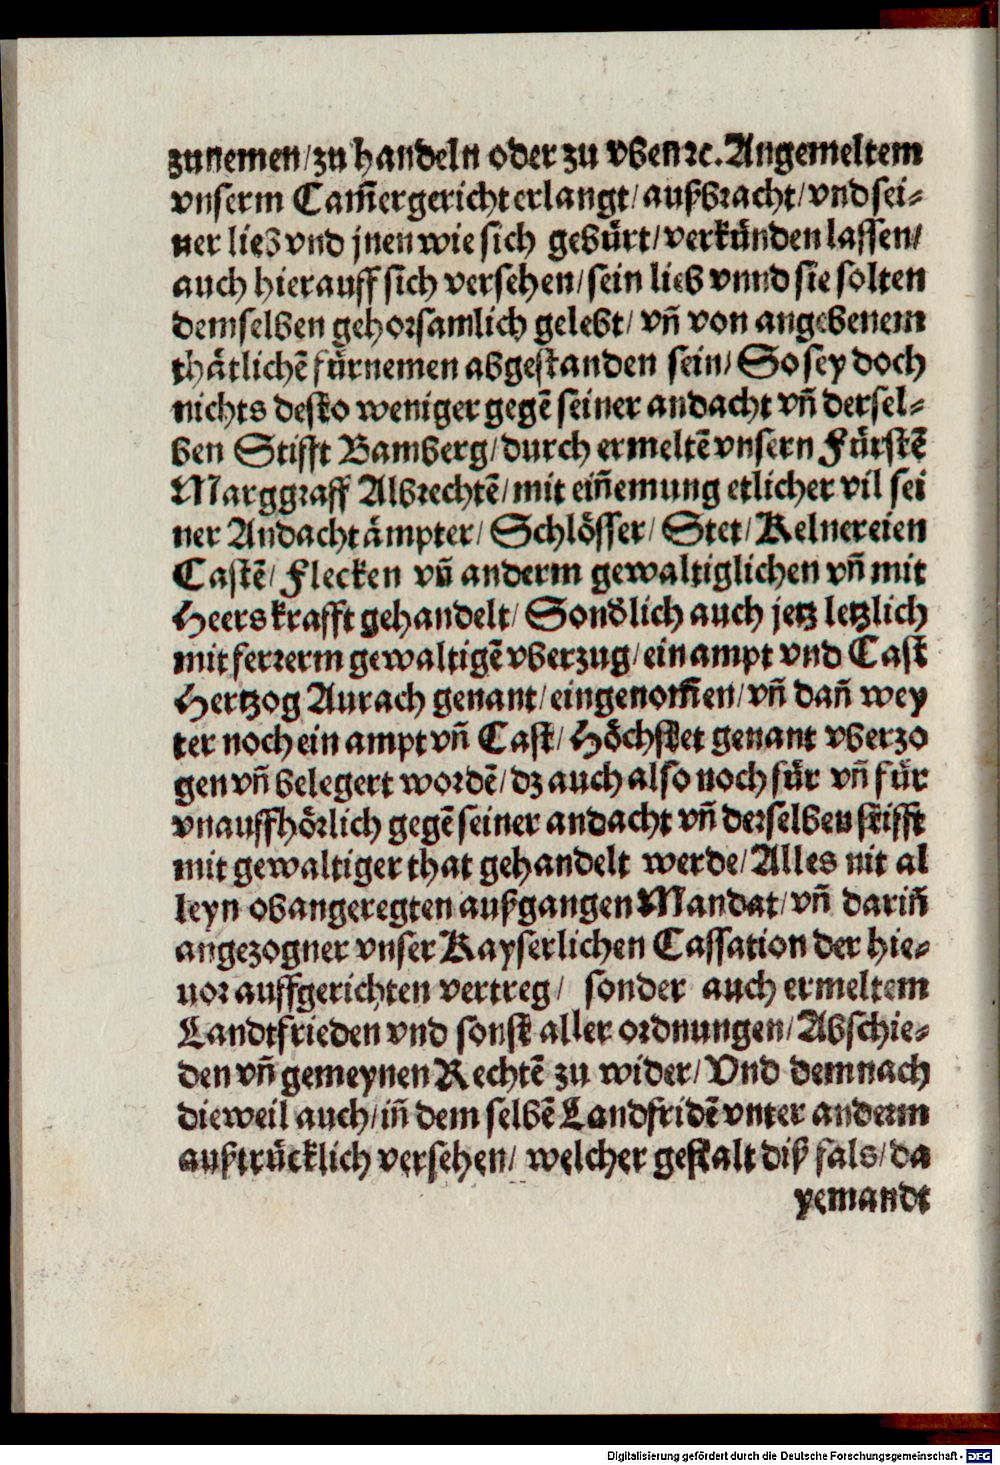 zunemen/zu handeln oder zu vben ꝛc. Angemeltem
vnserm Cam̃ergericht erlangt/außbracht/vnd sei-
ner lieb vnd jnen wie sich gebürt/verkünden lassen/
auch hierauff sich versehen/sein lieb vnnd sie solten
demselben gehorsamlich gelebt/vñ von angebenem
thätlichẽ fürnemen abgestanden sein/So sey doch
nichts desto weniger gegẽ seiner andacht vñ dersel-
ben Stifft Bamberg/durch ermeltẽ vnsern Fürstẽ
Marggraff Albrechtẽ/mit eiñemung etlicher vil sei
ner Andacht ämpter/Schlösser/Stet/Kelnereien
Castẽ/Flecken vñ anderm gewaltiglichen vñ mit
Heerskrafft gehandelt/Sonďlich auch jetz letzlich
mit ferrerm gewaltigẽ vberzug/ein ampt vnd Cast
Hertzog Aurach genant/eingenom̃en/vñ dañ wey
ter noch ein ampt vñ Cast/Höchstet genant vberzo
gen vñ belegert wordẽ/dz auch also noch für vñ für
vnauffhörlich gegẽ seiner andacht vñ derselben stifft
mit gewaltiger that gehandelt werde/Alles nit al
leyn obangeregten außgangen Mandat/vñ dariñ
angezogner vnser Kayserlichen Cassation der hie-
uor auffgerichten vertreg/ sonder auch ermeltem
Landtfrieden vnd sonst aller ordnungen/Abschie-
den vñ gemeynen Rechtẽ zu wider/Vnd demnach
dieweil auch/iñ dem selbẽ Landfridẽ vnter anderm
außtrücklich versehen/welcher gestalt diß fals/da
yemandt
Digitalisierung gefördert durch die Deutsche Forschungsgemeinschaft - DFG